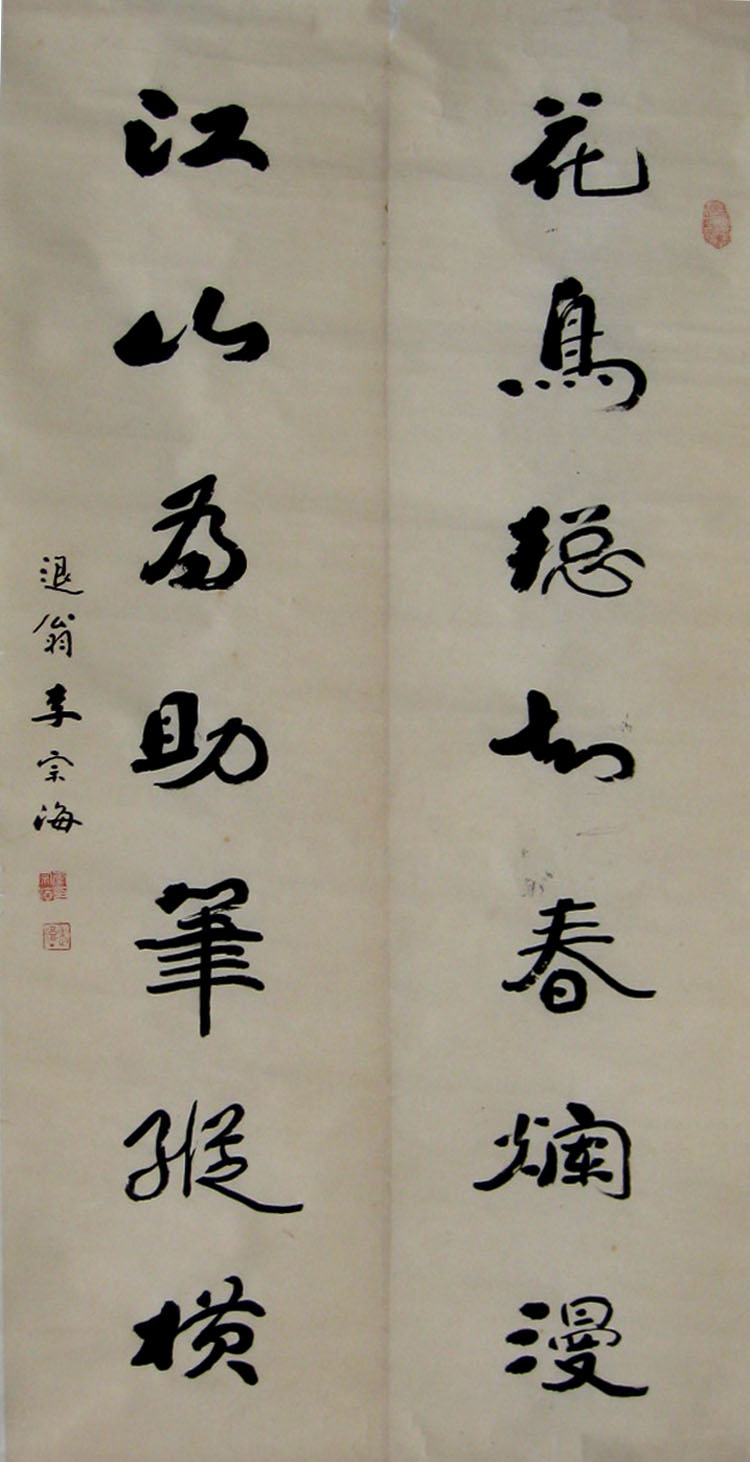 花鳥總知春爛漫
江山為助筆縱橫
退翁李宗海